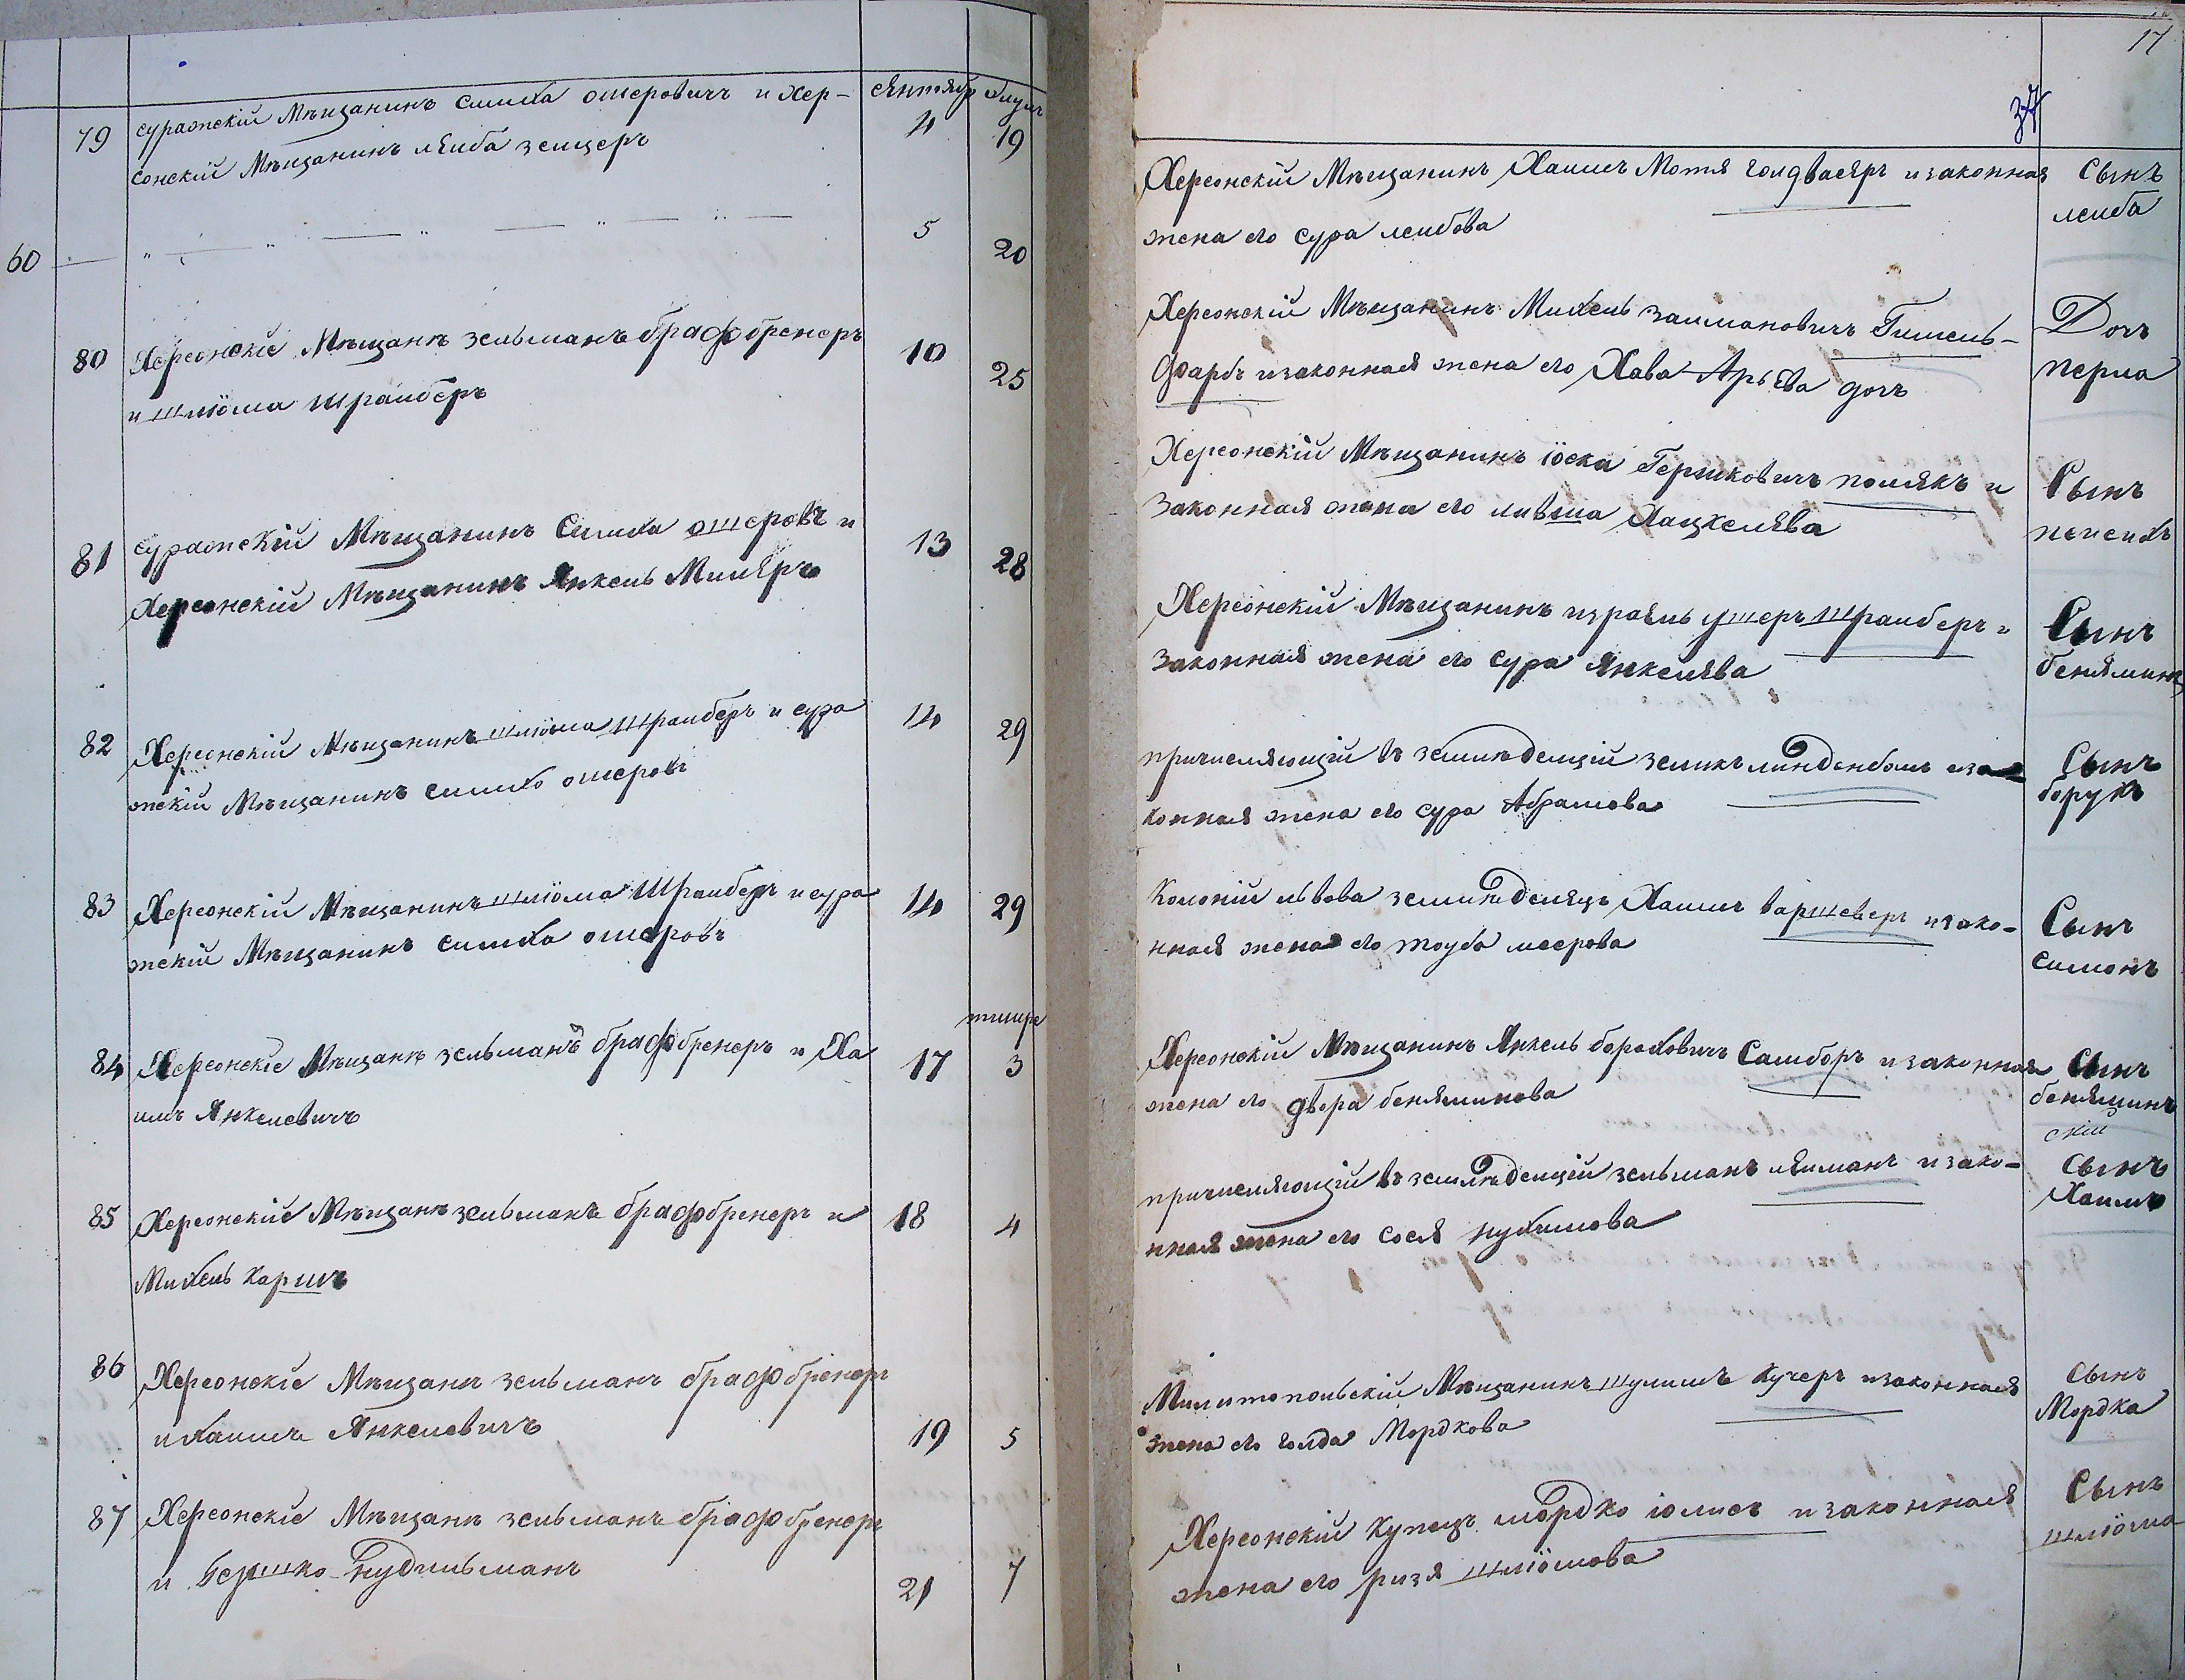 сентябр элулъ
79 суражскій Мѣщанинъ симха ошеровичъ и Хер- 4 19
сонскій Мѣщанинъ лейба зейцеръ
60 5 20
80 Херсонскіе Мѣщанѣ зельманъ брафбренеръ 10 25
и шлiома шрайберъ
81 суражскій Мѣщанинъ Симха ошеровъ и 13 28
Херсонскій Мѣщанинъ Янкель Миллеръ
82 Херсонскій Мѣщанинъ шлiома Шрайберъ и сура 14 29
жскій Мѣщанинъ симха ошеровъ
83 Херсонскій Мѣщанинъ шлiома Шрайберъ и сура 14 29
жскій Мѣщанинъ симха ошеровъ
тишре
84 Херсонскіе Мѣщанѣ зельманъ брафбренеръ и Ха 17 3
имъ Янкелевичъ
85 Херсонскіе Мѣщанѣ зельманъ брафбренеръ и 18 4
Михель Каршъ
86 Херсонскіе Мѣщанѣ зельманъ брафбренеръ
и хаимъ Янкелевичъ 19 5
87 Херсонскіе Мѣщанѣ зельманъ брафбренеръ
и Гершко Нудильманъ 21 7
17
37
Херсонскій Мѣщанинъ Хаимъ Мотя голдвасеръ и законная Сынъ
жена его сура лейбова лейба
Херсонскій Мѣщанинъ Михель займановичъ Гимель- Доч
фарбъ и законная жена его Хава Арьева дочъ перла
Херсонскій Мѣщанинъ iоска Гершковичъ полякъ и Сынъ
Законная жена его ливша Хацкелева пейсихъ
Херсонскій Мѣщанинъ израель ушеръ Шрайберъ и Сынъ
Законная жена его сура Янкелева бенямин
причисляющій въ земледелцій зеликъ линденбомъ иза Сынъ
конная жена его сура Абрамова борухъ
Колоній львова земледелецъ Хаимъ варшеверъ и зако- Сынъ
нная жена его тоуба меерова симонъ
Херсонскій Мѣщанинъ Янкель бороховичъ Самборъ и законная Сынъ
жена его двера беняминова бенямин
скій
причисляющій въ земледелцій зельманъ лейманъ и зако- Сынъ
нная жена его сося нухимова Хаимъ
Милитопольскій Мѣщанинъ шулимъ Кучеръ и законная сынъ
жена его голда Мордкова Мордка
Херсонскій Купецъ мордко iолисъ и законная Сынъ
жена его ризя шлiомова шлiома